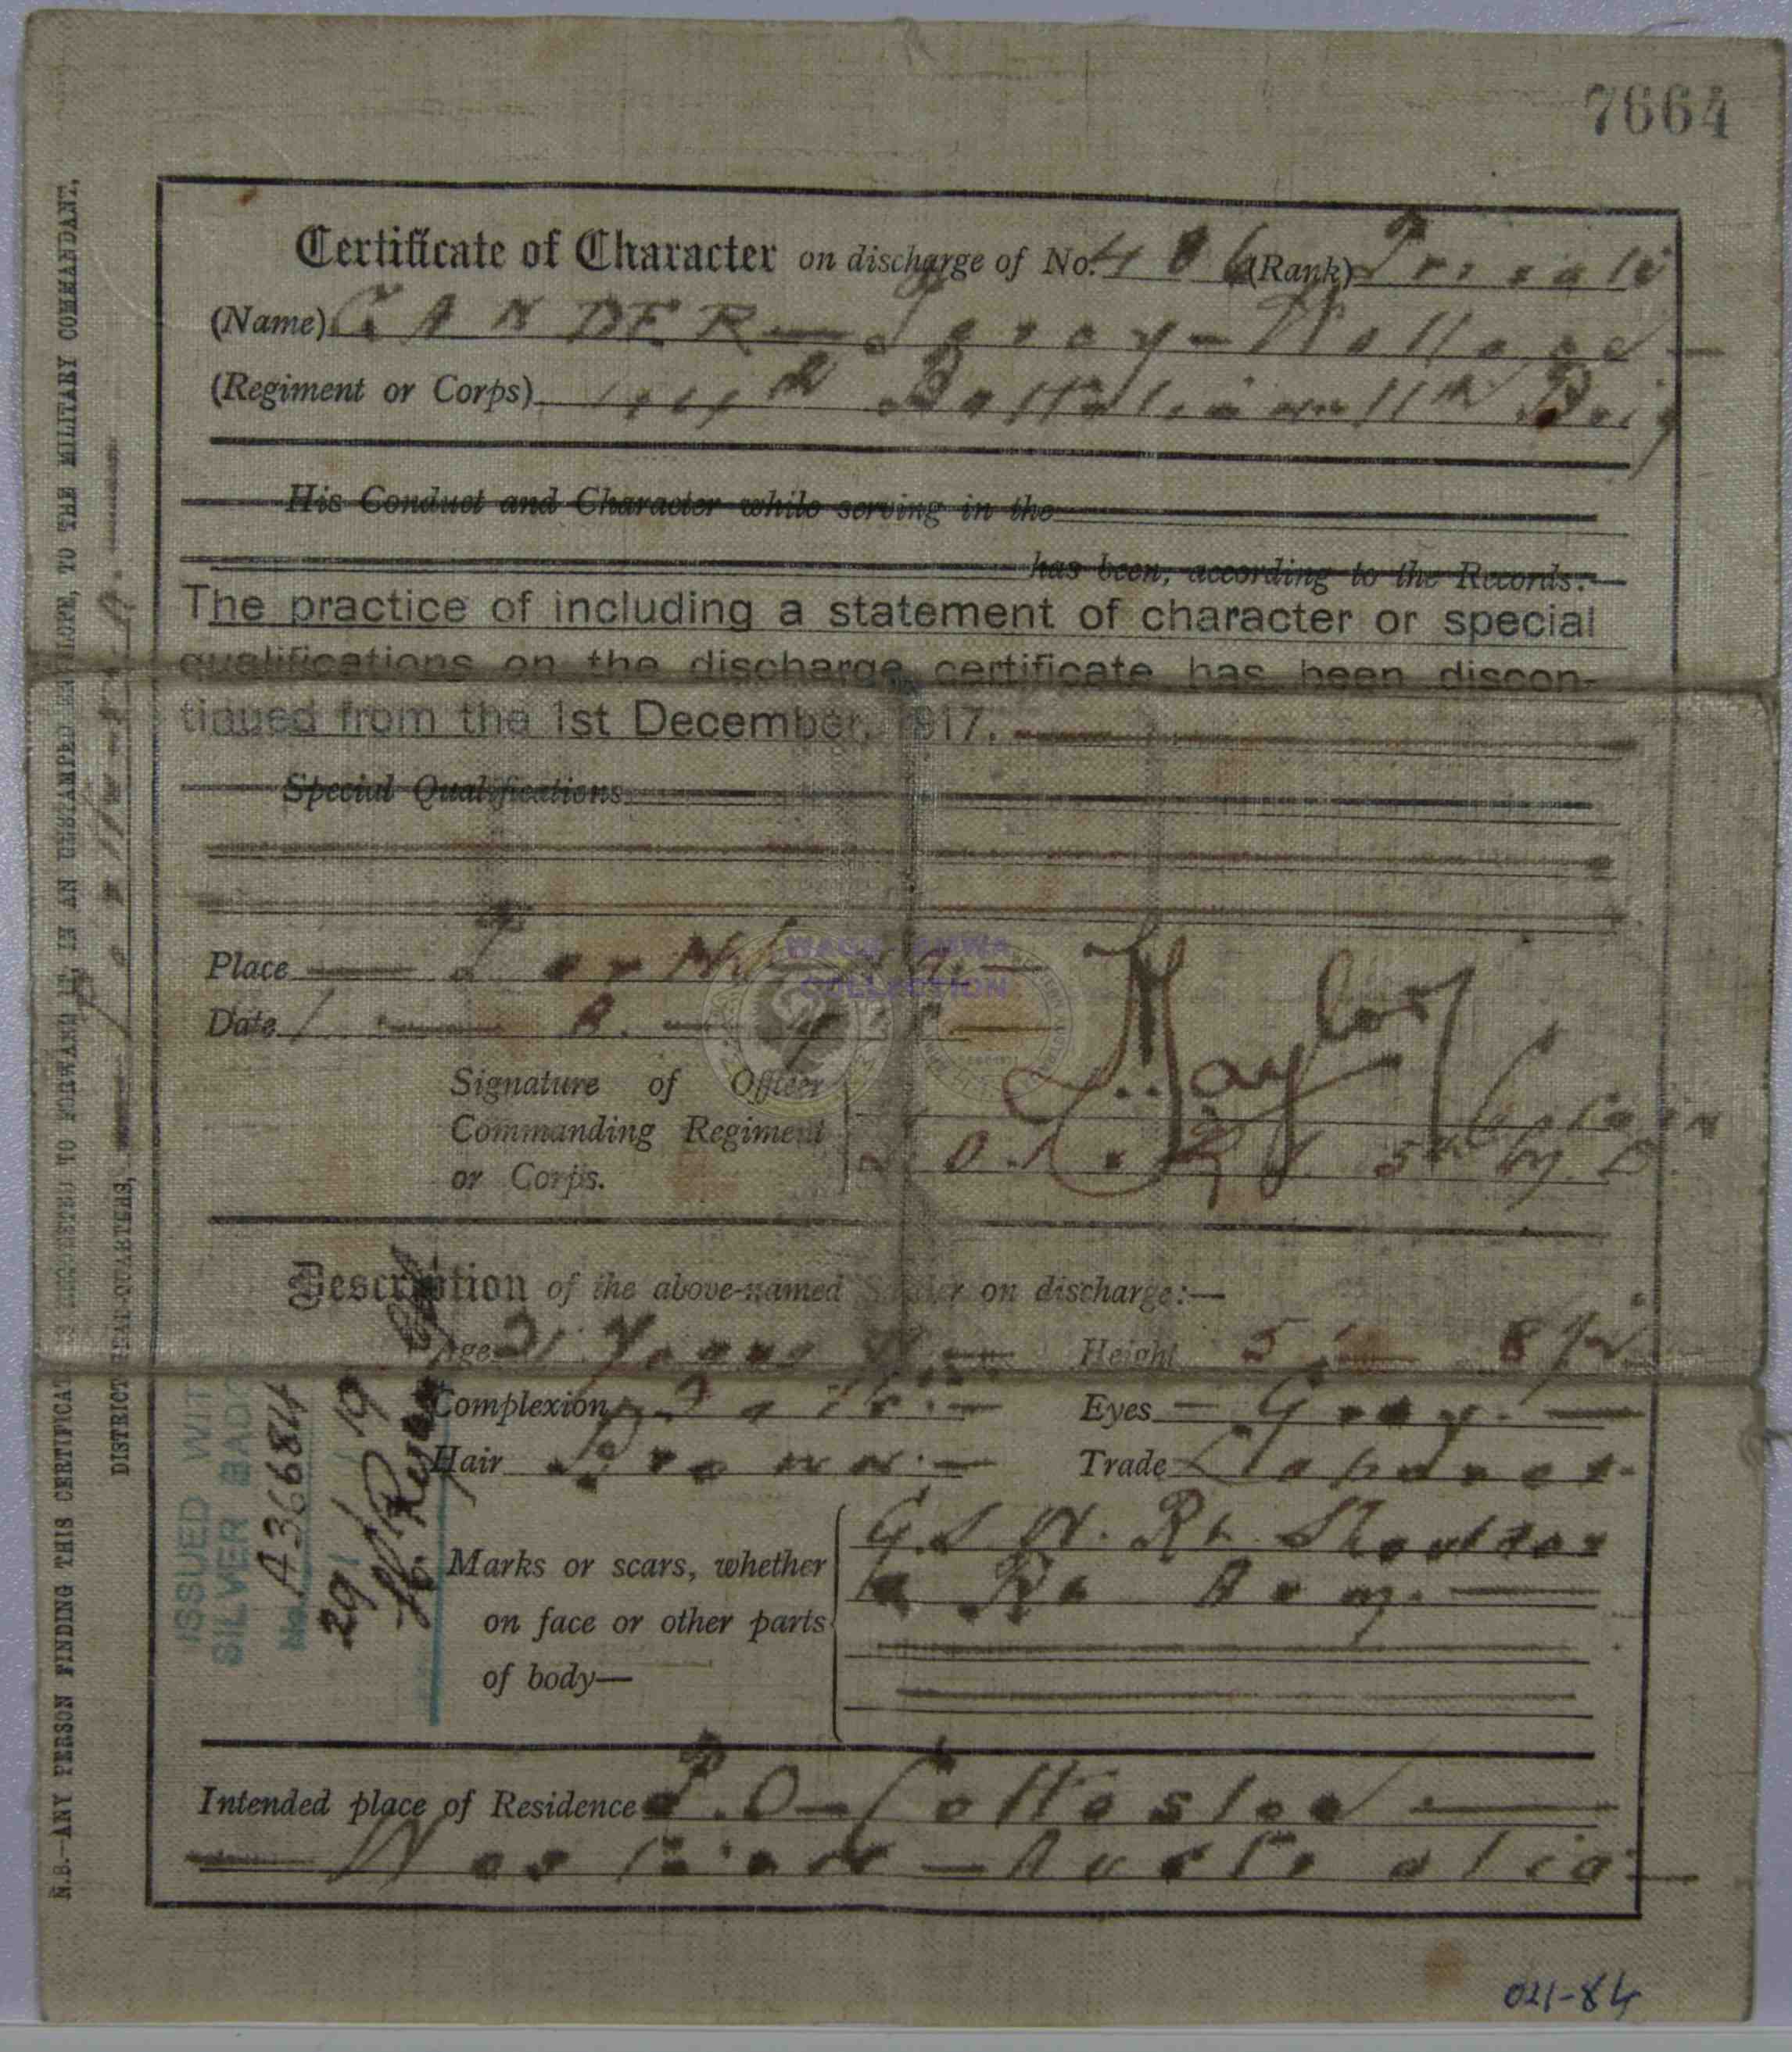 7664
Certificate of Character on discharge of No. 406 (Rank) Private
(Name) GANDER — Percy - Wallace —
(Regiment or Corps) 44th Battalion 11th Brig
His Conduct and Character while serving in the
has been, according to the Records:—
The practice of including a statement of character or special
qualifications on the discharge certificate has been discon-
tinued from the 1st December, 1917.
Special Qualifications
Place — Perth W.A. —
Date 1
WAGS AHMWA
COLLECTION
Taylor
Signature of Officer
Commanding Regiment
or Corps.
Captain
5th M. D.
Description of the above-named Soldier on discharge:—
Age 21 Years Height 5' 8½
Complexion Eyes — Grey. —
Hair Brown. — Trade Labourer.
Marks or scars, whether
on face or other parts
of body—
G.S.W. Rt Shoulder
Rt Arm. —
Intended place of Residence P.O — Cottesloe —
Western — Australia —
ISSUED WITH
SILVER BADGE
No. A36684
29 / 1 / 19
N.B.—ANY PERSON FINDING THIS CERTIFICATE IS REQUESTED TO FORWARD IT, IN AN UNSTAMPED ENVELOPE, TO THE MILITARY COMMANDANT,
DISTRICT HEAD-QUARTERS,
021-84